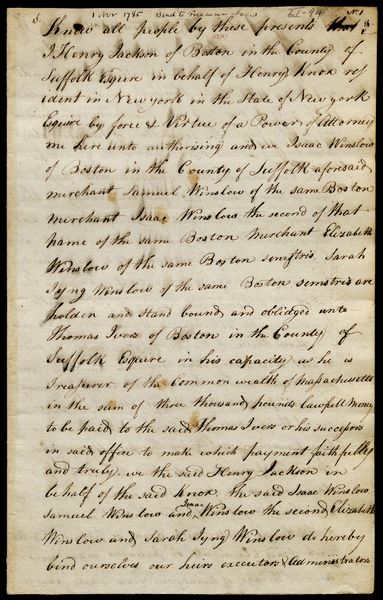 1 Nov 1785 Bond to Treasurer Ivers II-94 No 1
Know all people by these presents that
I Henry Jackson of Boston in the County of
Suffolk Esquire in behalf of Henry Knox res
ident in New york in the State of New york
Esquire by force & Virtue of a Power of Attorney
me here unto authorising and we Isaac Winslow
of Boston in the County of Suffolk aforesaid
merchant Samuel Winslow of the same Boston
merchant Isaac Winslow the second of that
name of the same Boston merchant Elizabeth
Winslow of the same Boston semstris Sarah
Tyng Winslow of the same Boston semstris are
holden and stand bound and oblidged unto
Thomas Ivers of Boston in the County of
Suffolk Esquire in his capacity as he is
Treasurer of the Common wealth of Massachusetts
in the sum of three thousand pounds lawfull money
to be paid to the said Thomas Ivers or his successors
in said office to make which payment faithfully
and truly we the said Henry Jackson in
behalf of the said Knox the said Isaac Winslow
Samuel Winslow and Isaac Winslow the second Elizabeth
Winslow and Sarah Tyng Winslow do hereby
bind ourselves our heirs executors & Administrators